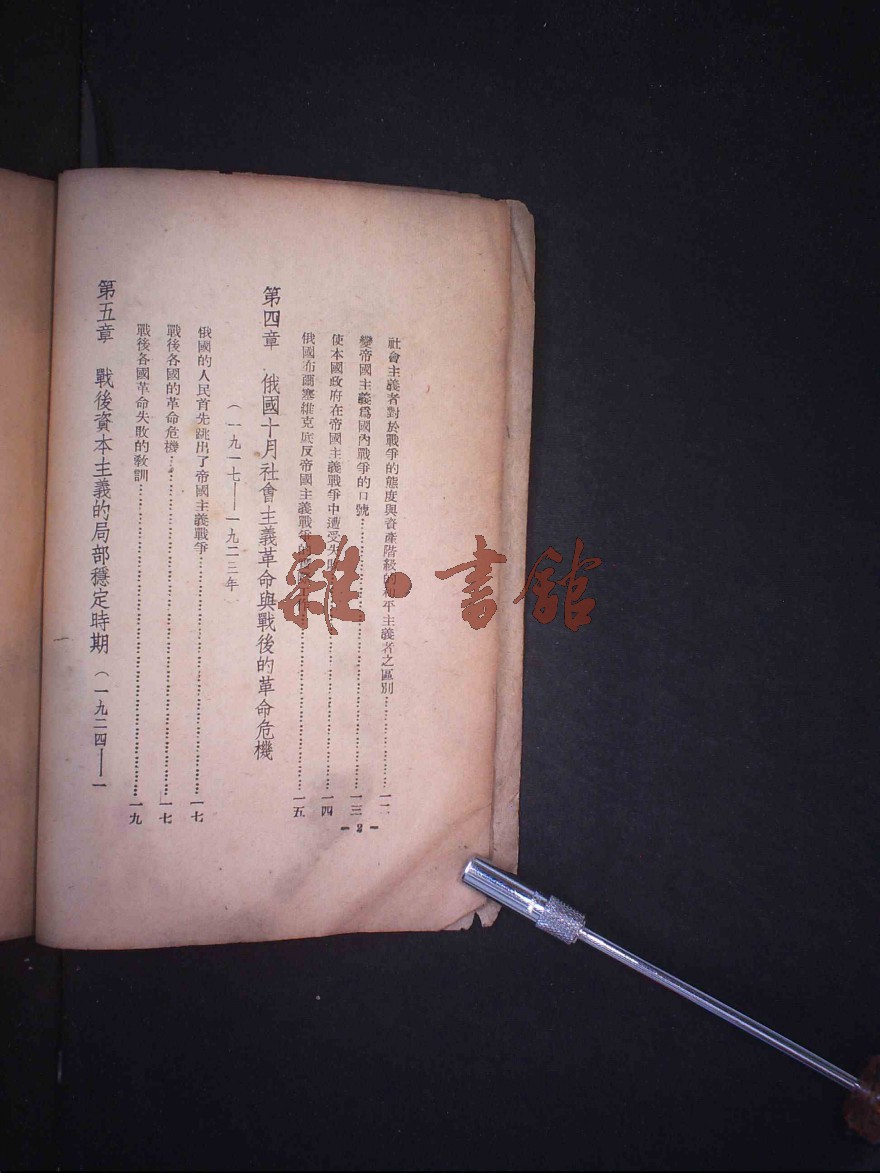 社會主義者對於戰爭的態度與資產階級的和平主義者之區別…………一一
變帝國主義爲國內戰爭的口號…………一三
使本國政府在帝國主義戰爭中遭受失敗…………一四
俄國布爾塞維克底反帝國主義戰爭的…………一五
第四章 俄國十月社會主義革命與戰後的革命危機
（一九一七——一九二三年）
俄國的人民首先跳出了帝國主義戰爭…………一七
戰後各國的革命危機…………一七
戰後各國革命失敗的敎訓…………一九
第五章 戰後資本主義的局部穩定時期（一九二四——一
- 2 -
雜·書館